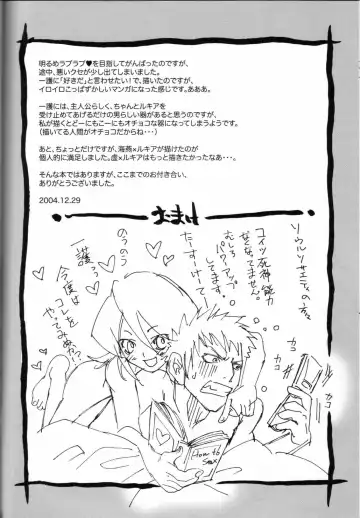 明るめラブラブ♥を目指してがんばったのですが、
途中、悪いクセが少し出てしまいました。
一護に「好きだ」と言わせたい！で、描いたのですが、
イロイロこっぱずかしいマンガになった感じです。あああ。
一護には、主人公らしく、ちゃんとルキアを
受け止めてあげるだけの男らしい器があると思うのですが、
私が描くとどーにもこーにもオチョコな器になってしまうようです。
（描いてる人間がオチョコだからね・・・）
あと、ちょっとだけですが、海燕×ルキアが描けたのが
個人的に満足しました。虚×ルキアはもっと描きたかったなあ・・・。
そんな本ではありますが、ここまでのお付き合い、
ありがとうございました。
2004.12.29
おまけ
ソウルソサエティの方
コイツ死神能力
なくなってません。
むしろ
パワーアップ
してます。
たーすーけーてー
カコ
カコ
のうのう
一護っ
今度は
コレを
やってみぬか？
How to
Sex